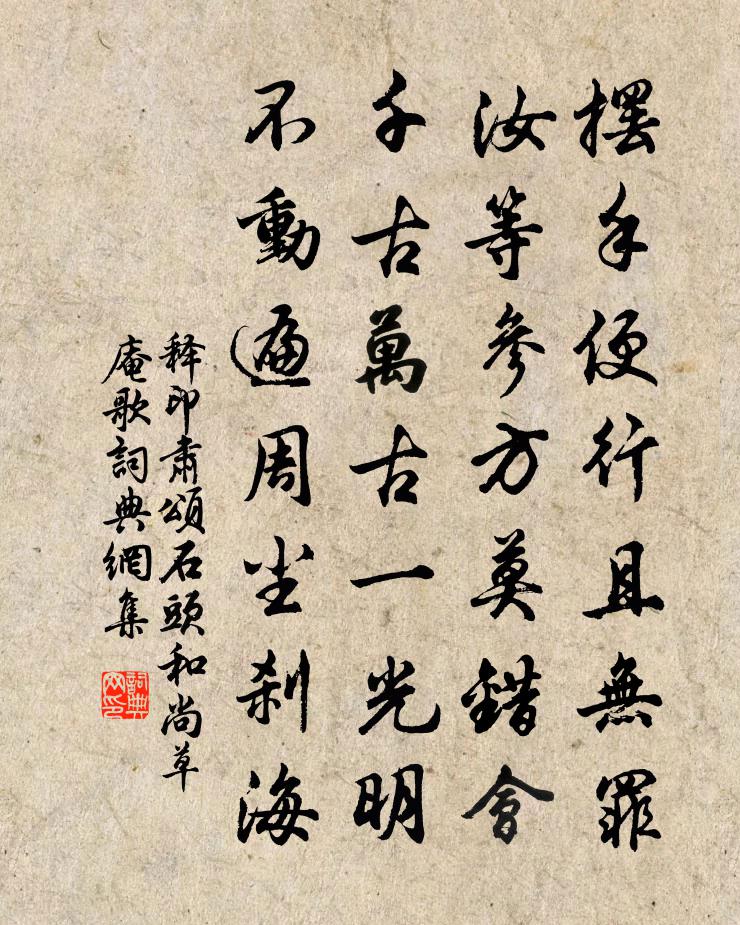 擺手便行且無罪
汝等參方莫錯會
千古萬古一光明
不動遍周尘剎海
释印肃頌石頭和尚草
庵歌詞典網集
詞典
网印